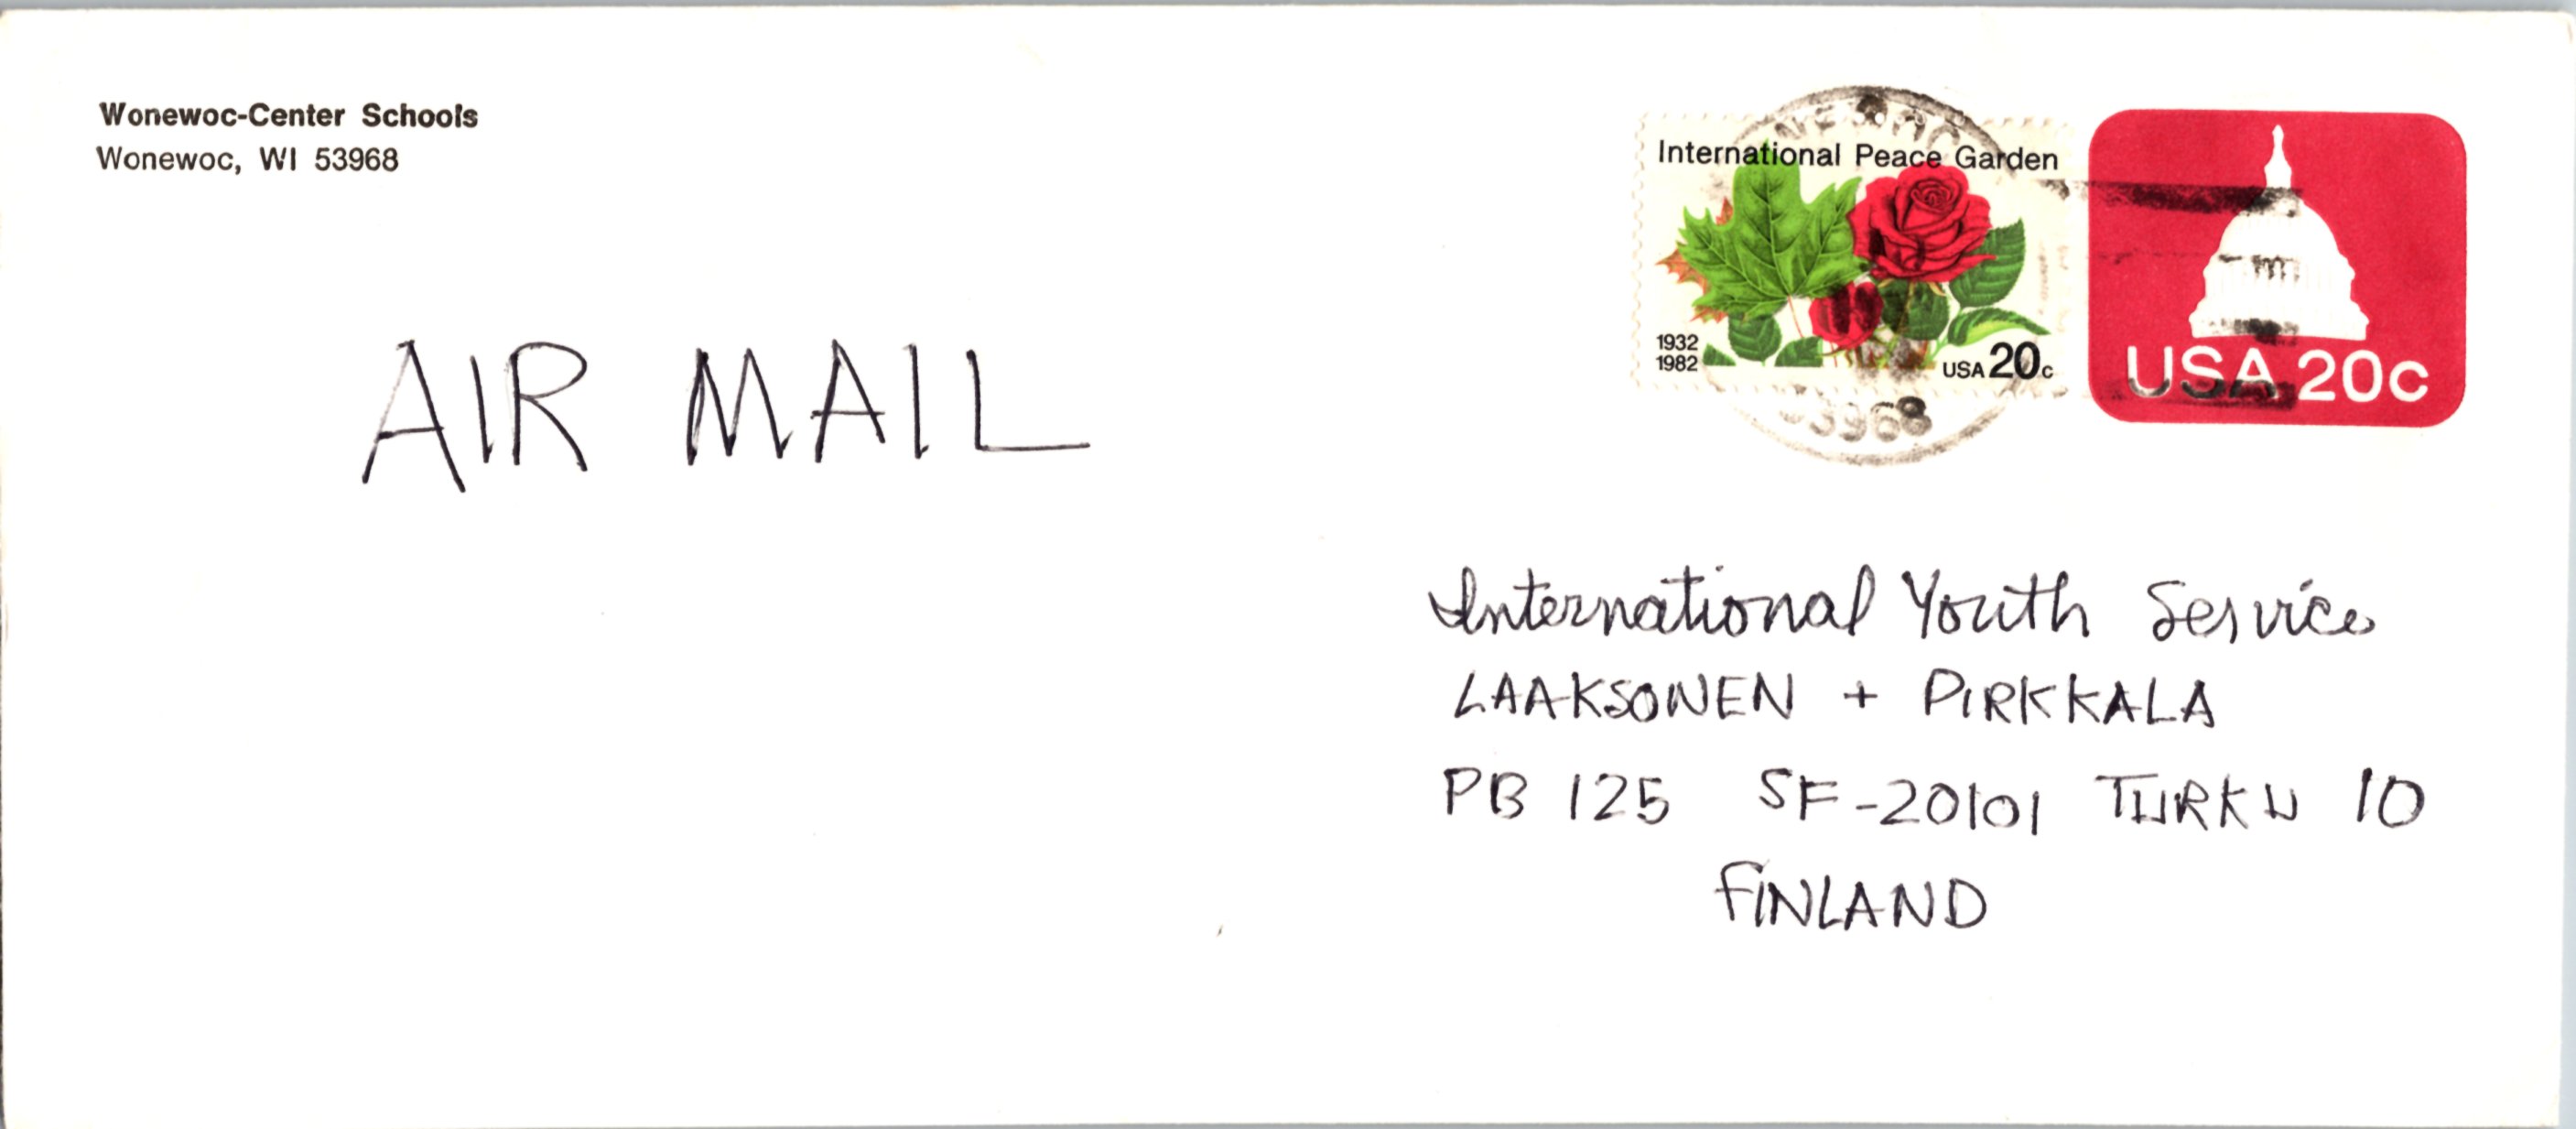 Wonewoc-Center Schools
Wonewoc, WI 53968
International Peace Garden
1932
1982
USA 20c
USA 20c
53968
AIR MAIL
International Youth Service
LAAKSONEN + PIRKKALA
PB 125 SF-20101 TURKU 10
FINLAND